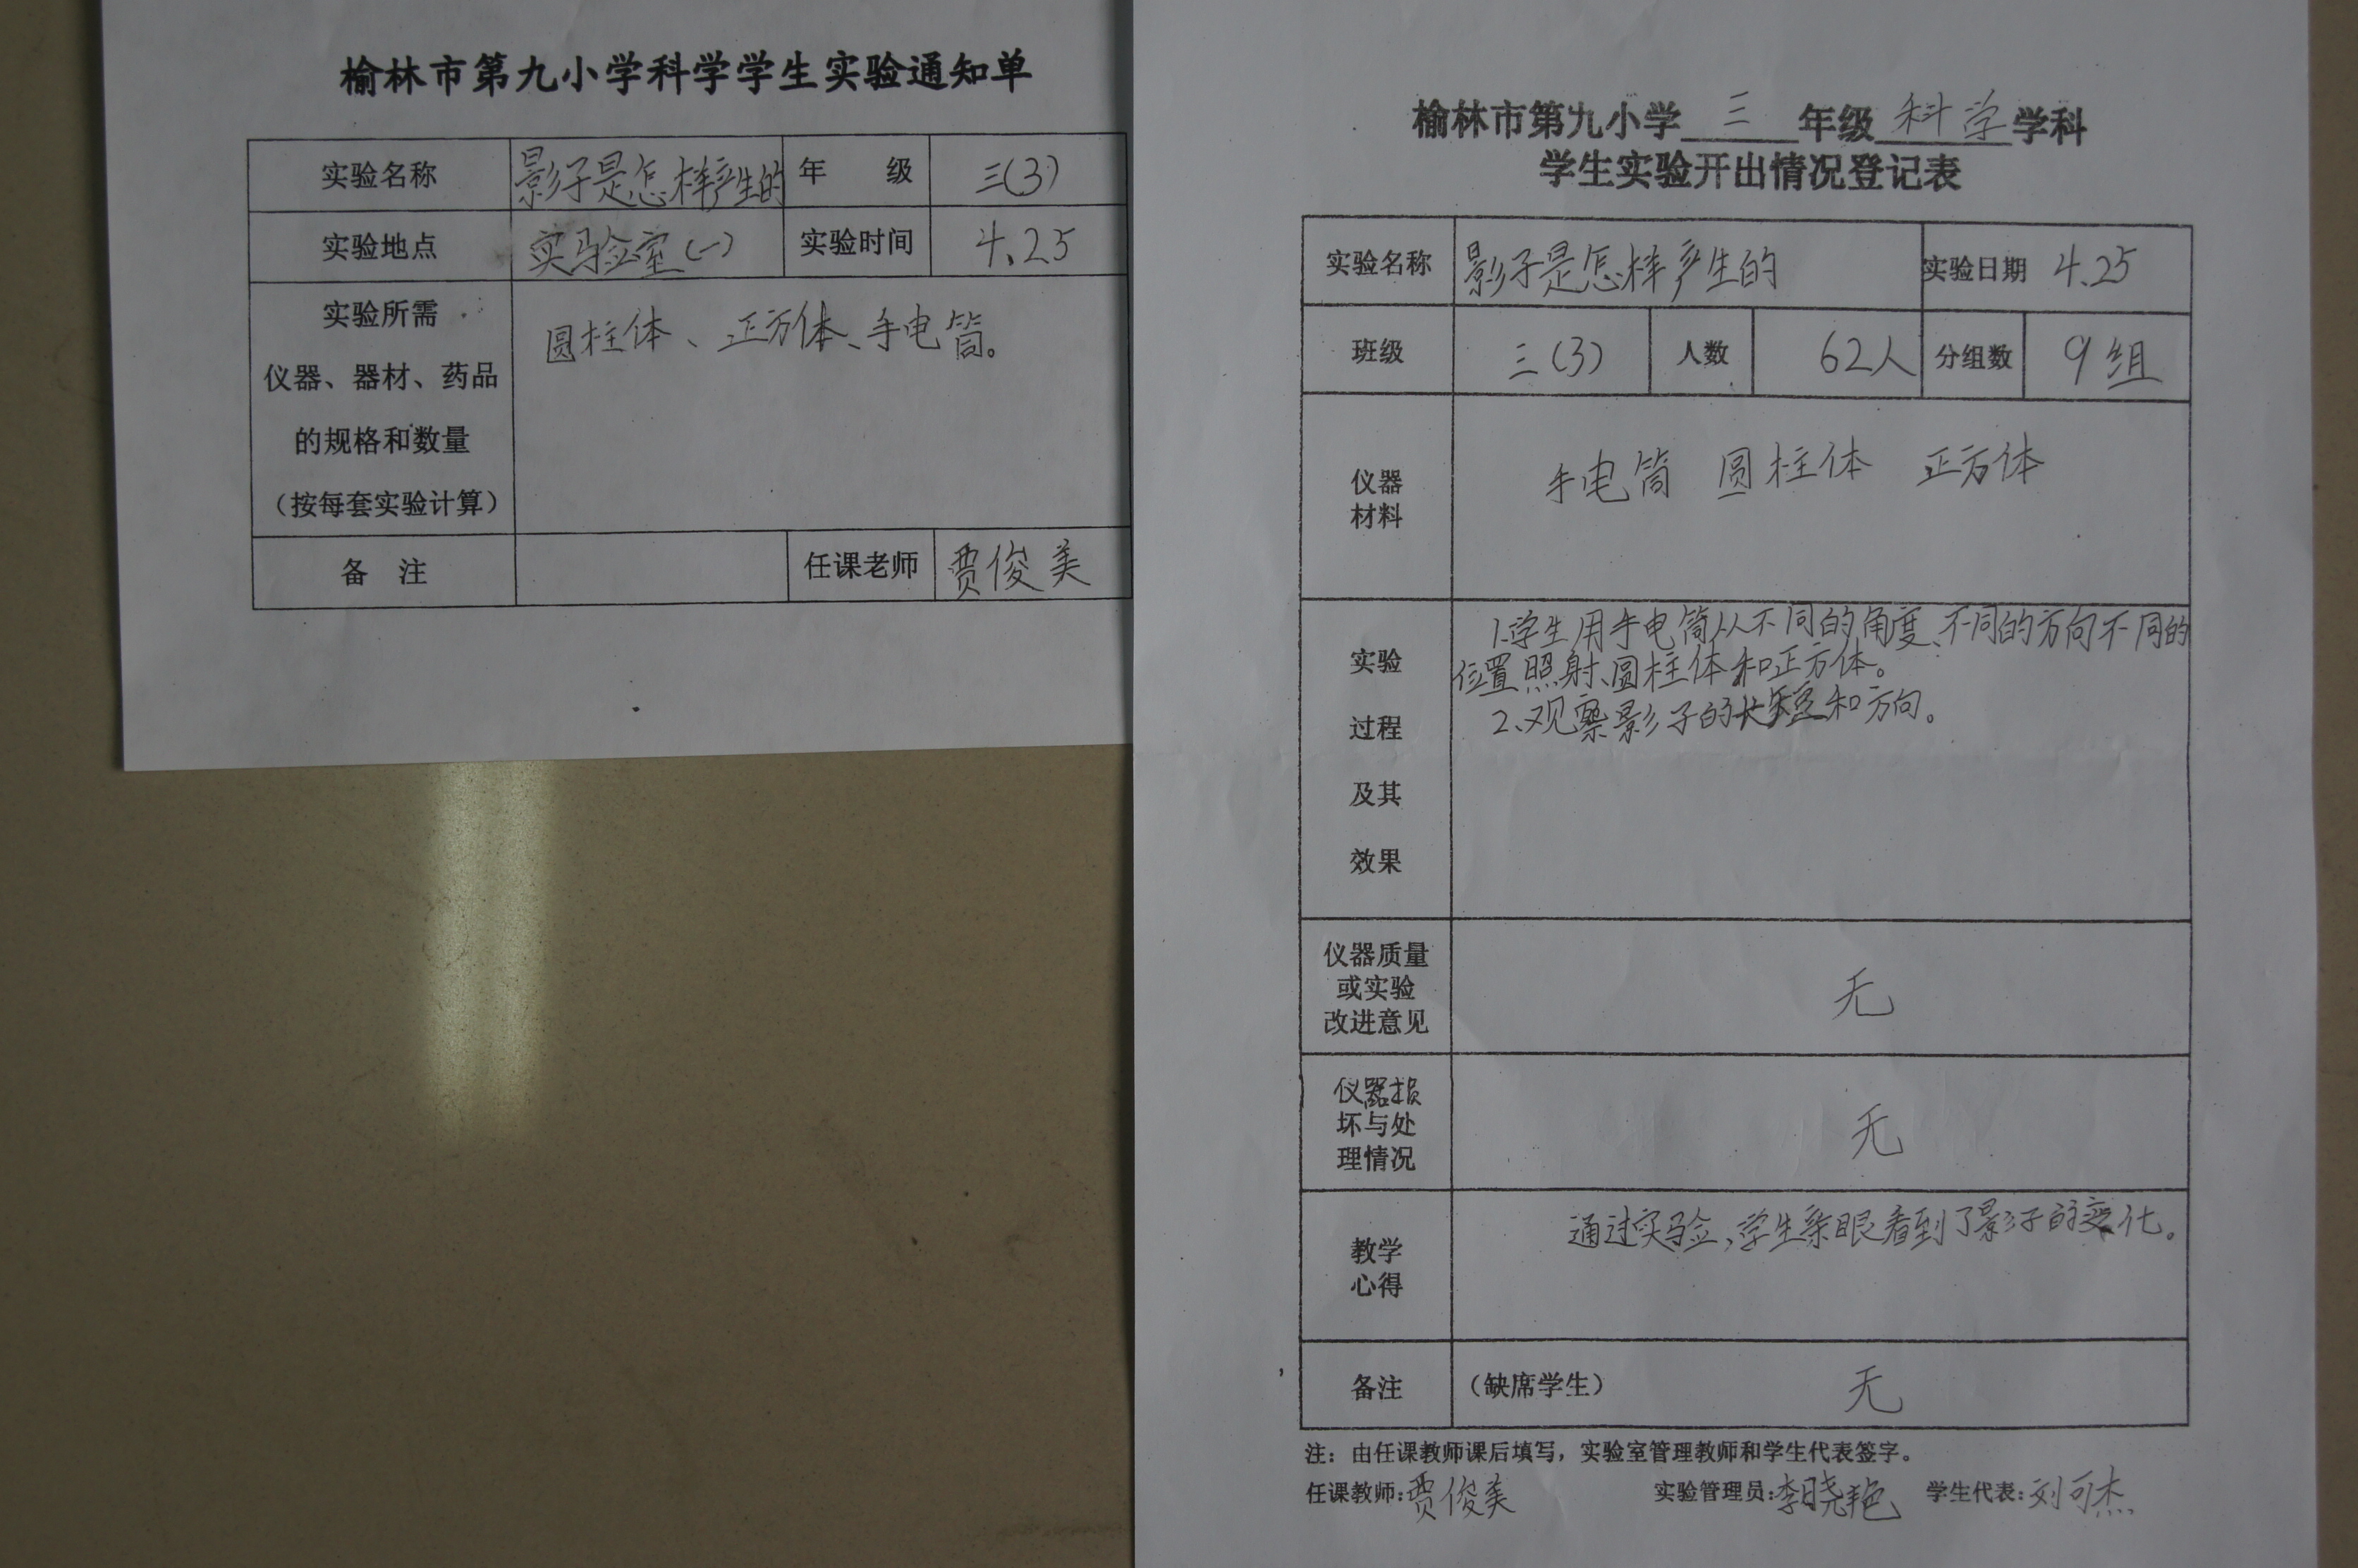 榆林市第九小学科学学生实验通知单
实验名称 影子是怎样产生的 年 级 三(3)
实验地点 实验室(一) 实验时间 4.25
实验所需
仪器、器材、药品
的规格和数量
(按每套实验计算)
圆柱体、正方体、手电筒。
备 注 任课老师 贾俊美
榆林市第九小学 三 年级 科学 学科
学生实验开出情况登记表
实验名称 影子是怎样产生的 实验日期 4.25
班级 三(3) 人数 62人 分组数 9组
仪器
材料
手电筒 圆柱体 正方体
实验
过程
及其
效果
1.学生用手电筒从不同的角度、不同的方向不同的
位置照射、圆柱体和正方体。
2、观察影子的长短和方向。
仪器质量
或实验
改进意见
无
仪器损
坏与处
理情况
无
教学
心得
通过实验,学生亲眼看到了影子的变化。
备注 (缺席学生) 无
注:由任课教师课后填写,实验室管理教师和学生代表签字。
任课教师:贾俊美 实验管理员:李晓艳 学生代表:刘可杰